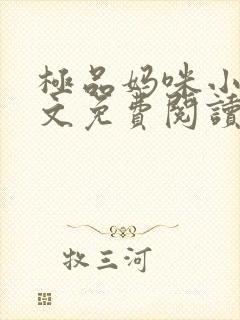 極品妈咪小
文免費閱讀
牧三河